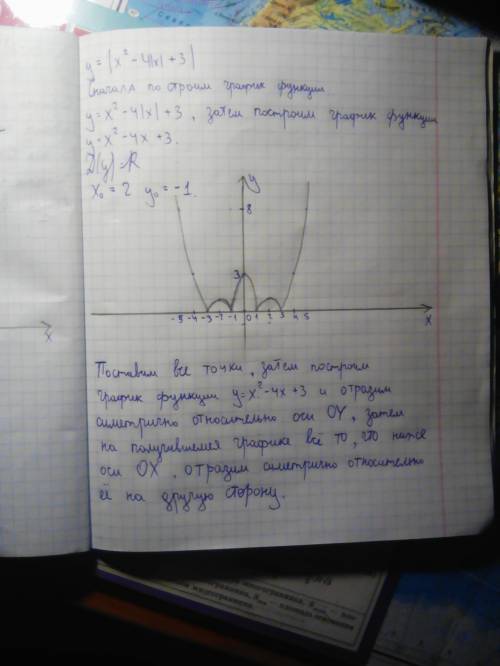 y = |x² - 4|x| + 3|
Сначала построим график функции
y = x² - 4|x| + 3, затем построим график функции
y = x² - 4x + 3.
D(y) = R
x₀ = 2 y₀ = -1.
y
8
3
-5 -4 -3 -2 -1 0 1 2 3 4 5
x
x
Поставим все точки, затем построим
график функции y = x² - 4x + 3 и отразим
симетрично относительно оси OY, затем
на получившемся графике все то, что ниже
оси OX, отразим симетрично относително
её на другую сторону.